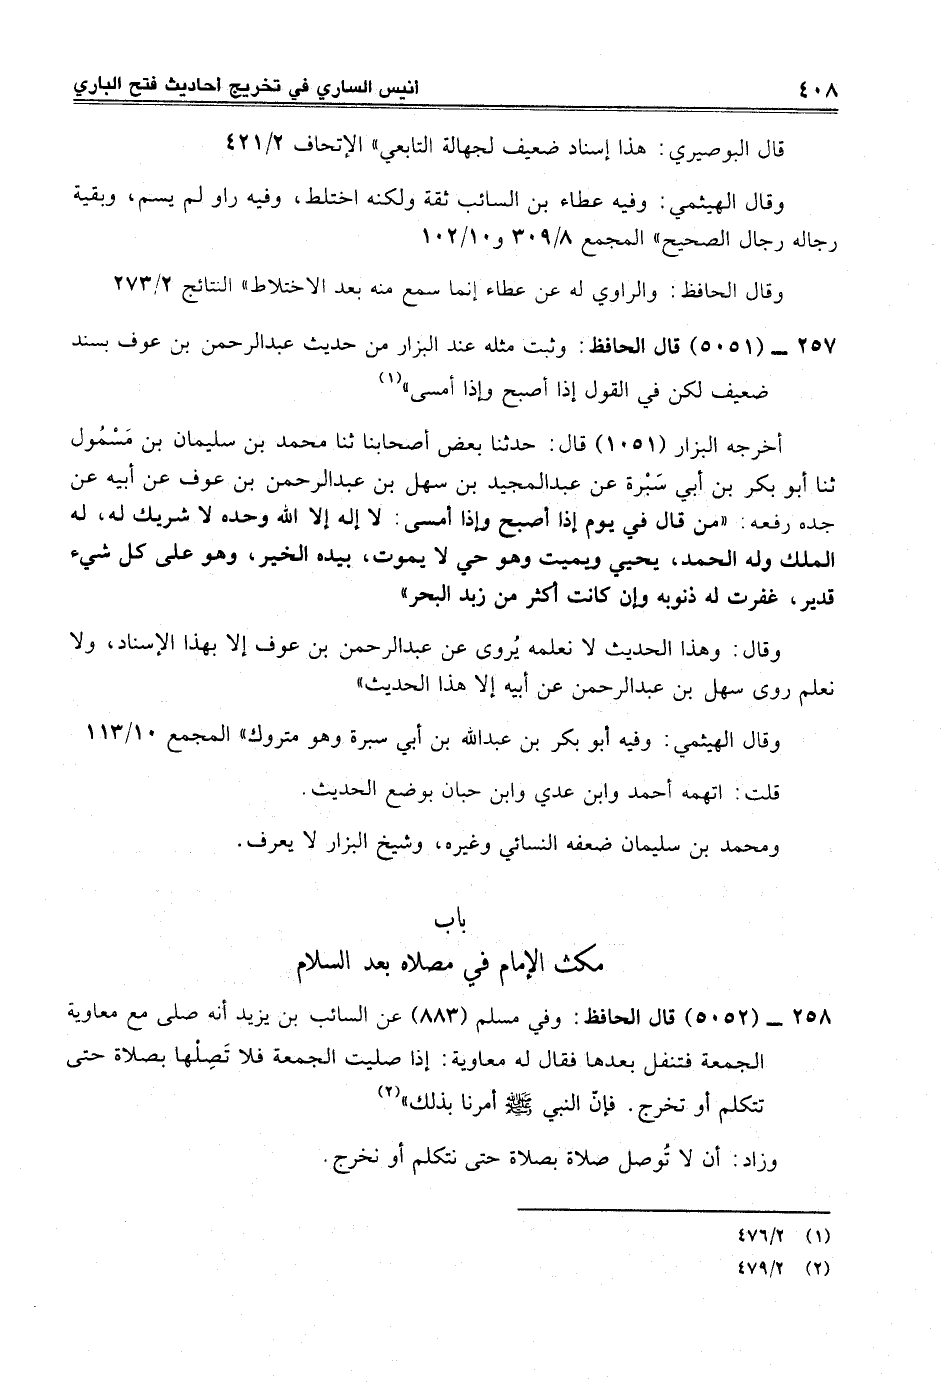 ٤٠٨
أنيس الساري في تخريج أحاديث فتح الباري
قال البوصيري: هذا إسناد ضعيف لجهالة التابعي» الإتحاف ٤٢١/٢
وقال الهيثمي: وفيه عطاء بن السائب ثقة ولكنه اختلط، وفيه راو لم يسم، وبقية
رجاله رجال الصحيح» المجمع ٣٠٩/٨ و١٠٢/١٠
وقال الحافظ: والراوي له عن عطاء إنما سمع منه بعد الاختلاط» النتائج ٢٧٣/٢
٢٥٧ ـ (٥٠٥١) قال الحافظ: وثبت مثله عند البزار من حديث عبدالرحمن بن عوف بسند
ضعيف لكن في القول إذا أصبح وإذا أمسى»(١)
أخرجه البزار (١٠٥١) قال: حدثنا بعض أصحابنا ثنا محمد بن سليمان بن مَسْمُول
ثنا أبو بكر بن أبي سَبْرة عن عبدالمجيد بن سهل بن عبدالرحمن بن عوف عن أبيه عن
جده رفعه: «من قال في يوم إذا أصبح وإذا أمسى: لا إله إلا الله وحده لا شريك له، له
الملك وله الحمد، يحيي ويميت وهو حي لا يموت، بيده الخير، وهو على كل شيء
قدير، غفرت له ذنوبه وإن كانت أكثر من زبد البحر»
وقال: وهذا الحديث لا نعلمه يُروى عن عبدالرحمن بن عوف إلا بهذا الإسناد، ولا
نعلم روى سهل بن عبدالرحمن عن أبيه إلا هذا الحديث»
وقال الهيثمي: وفيه أبو بكر بن عبدالله بن أبي سبرة وهو متروك» المجمع ١١٣/١٠
قلت: اتهمه أحمد وابن عدي وابن حبان بوضع الحديث.
ومحمد بن سليمان ضعفه النسائي وغيره، وشيخ البزار لا يعرف.
باب
مكث الإمام في مصلاه بعد السلام
٢٥٨ ـ (٥٠٥٢) قال الحافظ: وفي مسلم (٨٨٣) عن السائب بن يزيد أنه صلى مع معاوية
الجمعة فتنفل بعدها فقال له معاوية: إذا صليت الجمعة فلا تَصِلْها بصلاة حتى
تتكلم أو تخرج. فإنّ النبي ﷺ أمرنا بذلك»(٢)
وزاد: أن لا تُوصل صلاة بصلاة حتى نتكلم أو نخرج.
(١) ٤٧٦/٢
(٢) ٤٧٩/٢